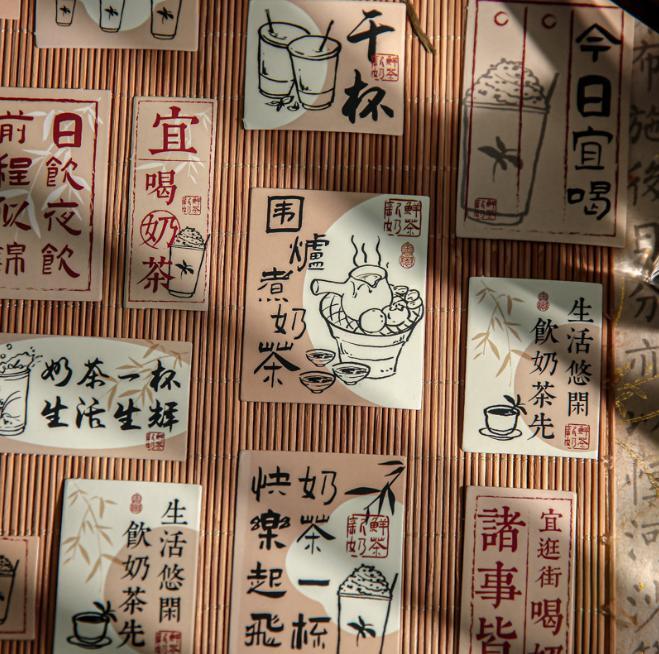 干杯
今日宜喝
日飲夜飲
前程似錦
宜喝奶茶
围爐煮奶茶
生活悠閑
飲奶茶先
奶茶一杯
生活生輝
生活悠閑
飲奶茶先
奶茶一杯
快樂起飛
宜逛街喝奶
諸事皆